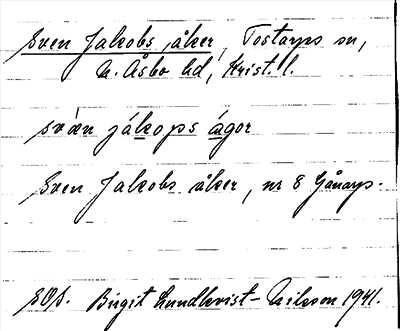 Sven Jakobs åker, Tostarps sn,
N. Åsbo hd, Krist. l.
svæn jákops ágor
Sven Jakobs åker, nr 8 Gånarp.
Birgit Lundkvist-Nilsson 1941.